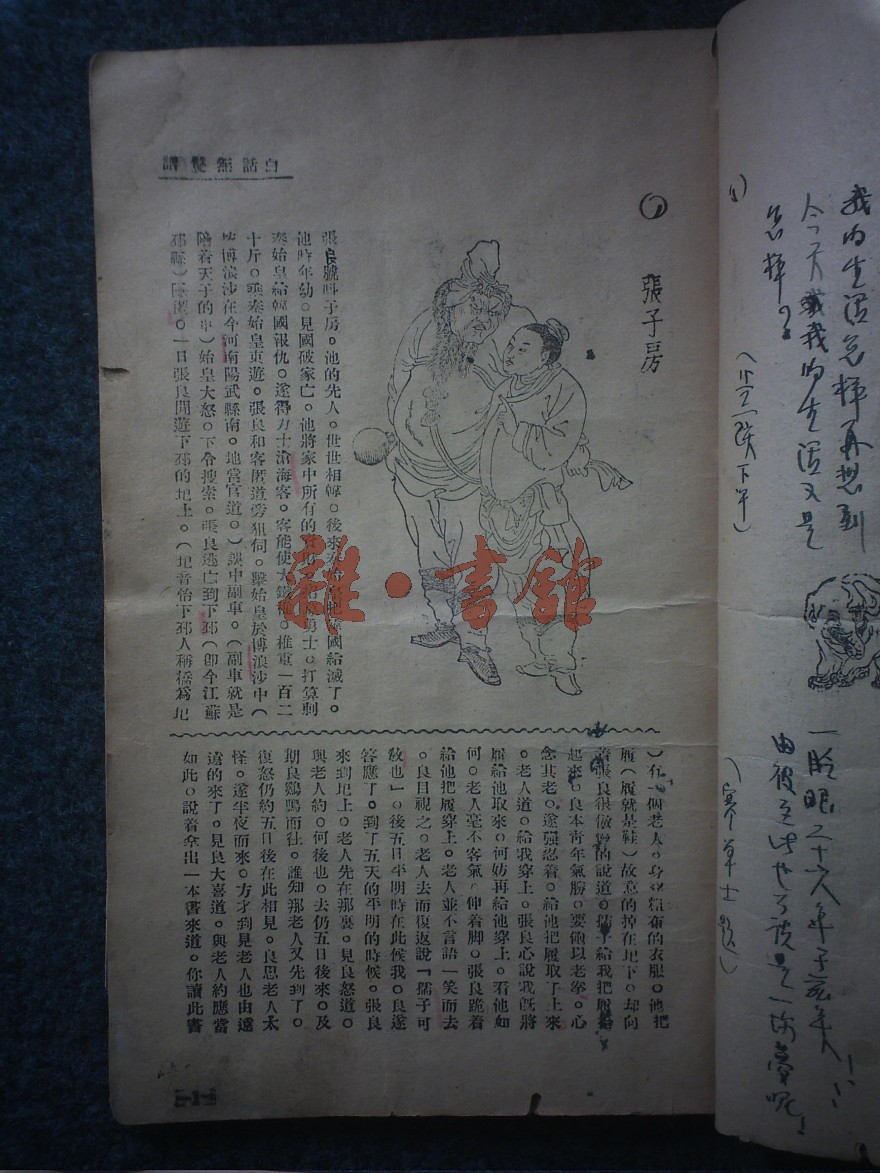 白話無雙譜
張子房
張良號叫子房。他的先人。世世相韓。後來
國給滅了。
他時年幼。見國破家亡。他將家中所有的
勇士。打算刺
秦始皇給韓國報仇。遂得力士滄海客。客能使大鐵椎。椎重一百二
十斤。乘秦始皇東遊。張良和客匿道旁狙伺。擊始皇於博浪沙中(
博浪沙在今河南陽武縣南。地當官道。)誤中副車。(副車就是
隨着天子的車)始皇大怒。下令搜索。張良逃亡到下邳(即今江蘇
邳縣)隱匿。一日張良閒遊下邳的圯上。(圯音怡下邳人稱橋為圯
)有一個老人。身穿粗布的衣服。他把
履(履就是鞋)故意的掉在圯下。却向
着張良很傲慢的說道。孺子給我把履拾
起來。良本青年氣勝。要砸以老拳。心
念其老。遂强忍着。給他把履取了上來
。老人道。給我穿上。張良心說我既將
履給他取來。何妨再給他穿上。看他如
何。老人毫不客氣。伸着脚。張良跪着
給他把履穿上。老人並不言語一笑而去
。良目視之。老人去而復返說「孺子可
敎也」。後五日平明時在此候我。良遂
答應了。到了五天的平明的時候。張良
來到圯上。老人先在那裏。見良怒道。
與老人約。何後也。去仍五日後來。及
期良鷄鳴而往。誰知那老人又先到了。
復怒仍約五日後在此相見。良思老人太
怪。遂半夜而來。方才到見老人也由遠
遠的來了。見良大喜道。與老人約應當
如此。說着拿出一本書來道。你讀此書
—1—
我的生活怎樣再想到
今天我的生活又是
怎樣?
一眨眼二十八年了
雜·書館